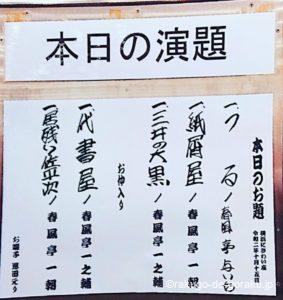 本日の演題
本日のお題
横浜にぎわい座
令和二年十月十五日
一、つる ノ 春風亭 与いち
一、紙屑屋 ノ 春風亭 一之輔
一、三井の大黒 ノ 春風亭 一朝
お仲入り
一、代書屋 ノ 春風亭 一之輔
一、居残り佐平次 ノ 春風亭 一朝
お囃子 恩田えり